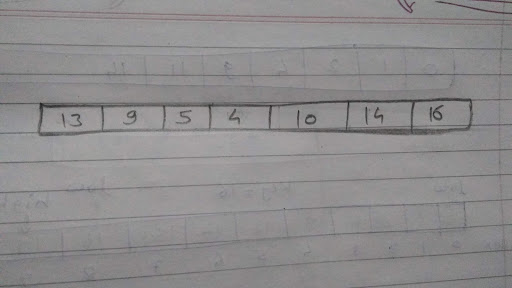 13 9 5 4 10 14 16